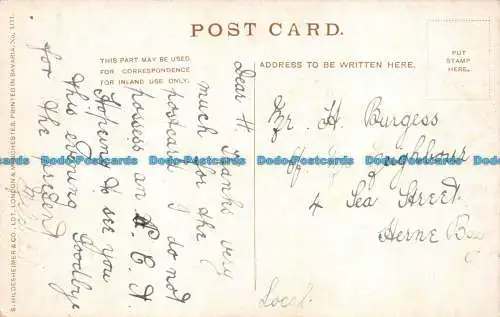 POST CARD.
THIS PART MAY BE USED
FOR CORRESPONDENCE
FOR INLAND USE ONLY.
ADDRESS TO BE WRITTEN HERE.
PUT
STAMP
HERE.
S. HILDESHEIMER & CO., LDT. LONDON & MANCHESTER. PRINTED IN BAVARIA, No.
Dear H. Thanks very
much for the
postcard I do not
possess an P. C. A.
Hoping to see you
this evening Goodbye
for the present
Mr. H Burgess
Neighbour
4 Sea Street.
Herne Bay
Local
Bodo-Postcards
Bodo-Postcards
Bodo-Postcards
Bodo-Postcards